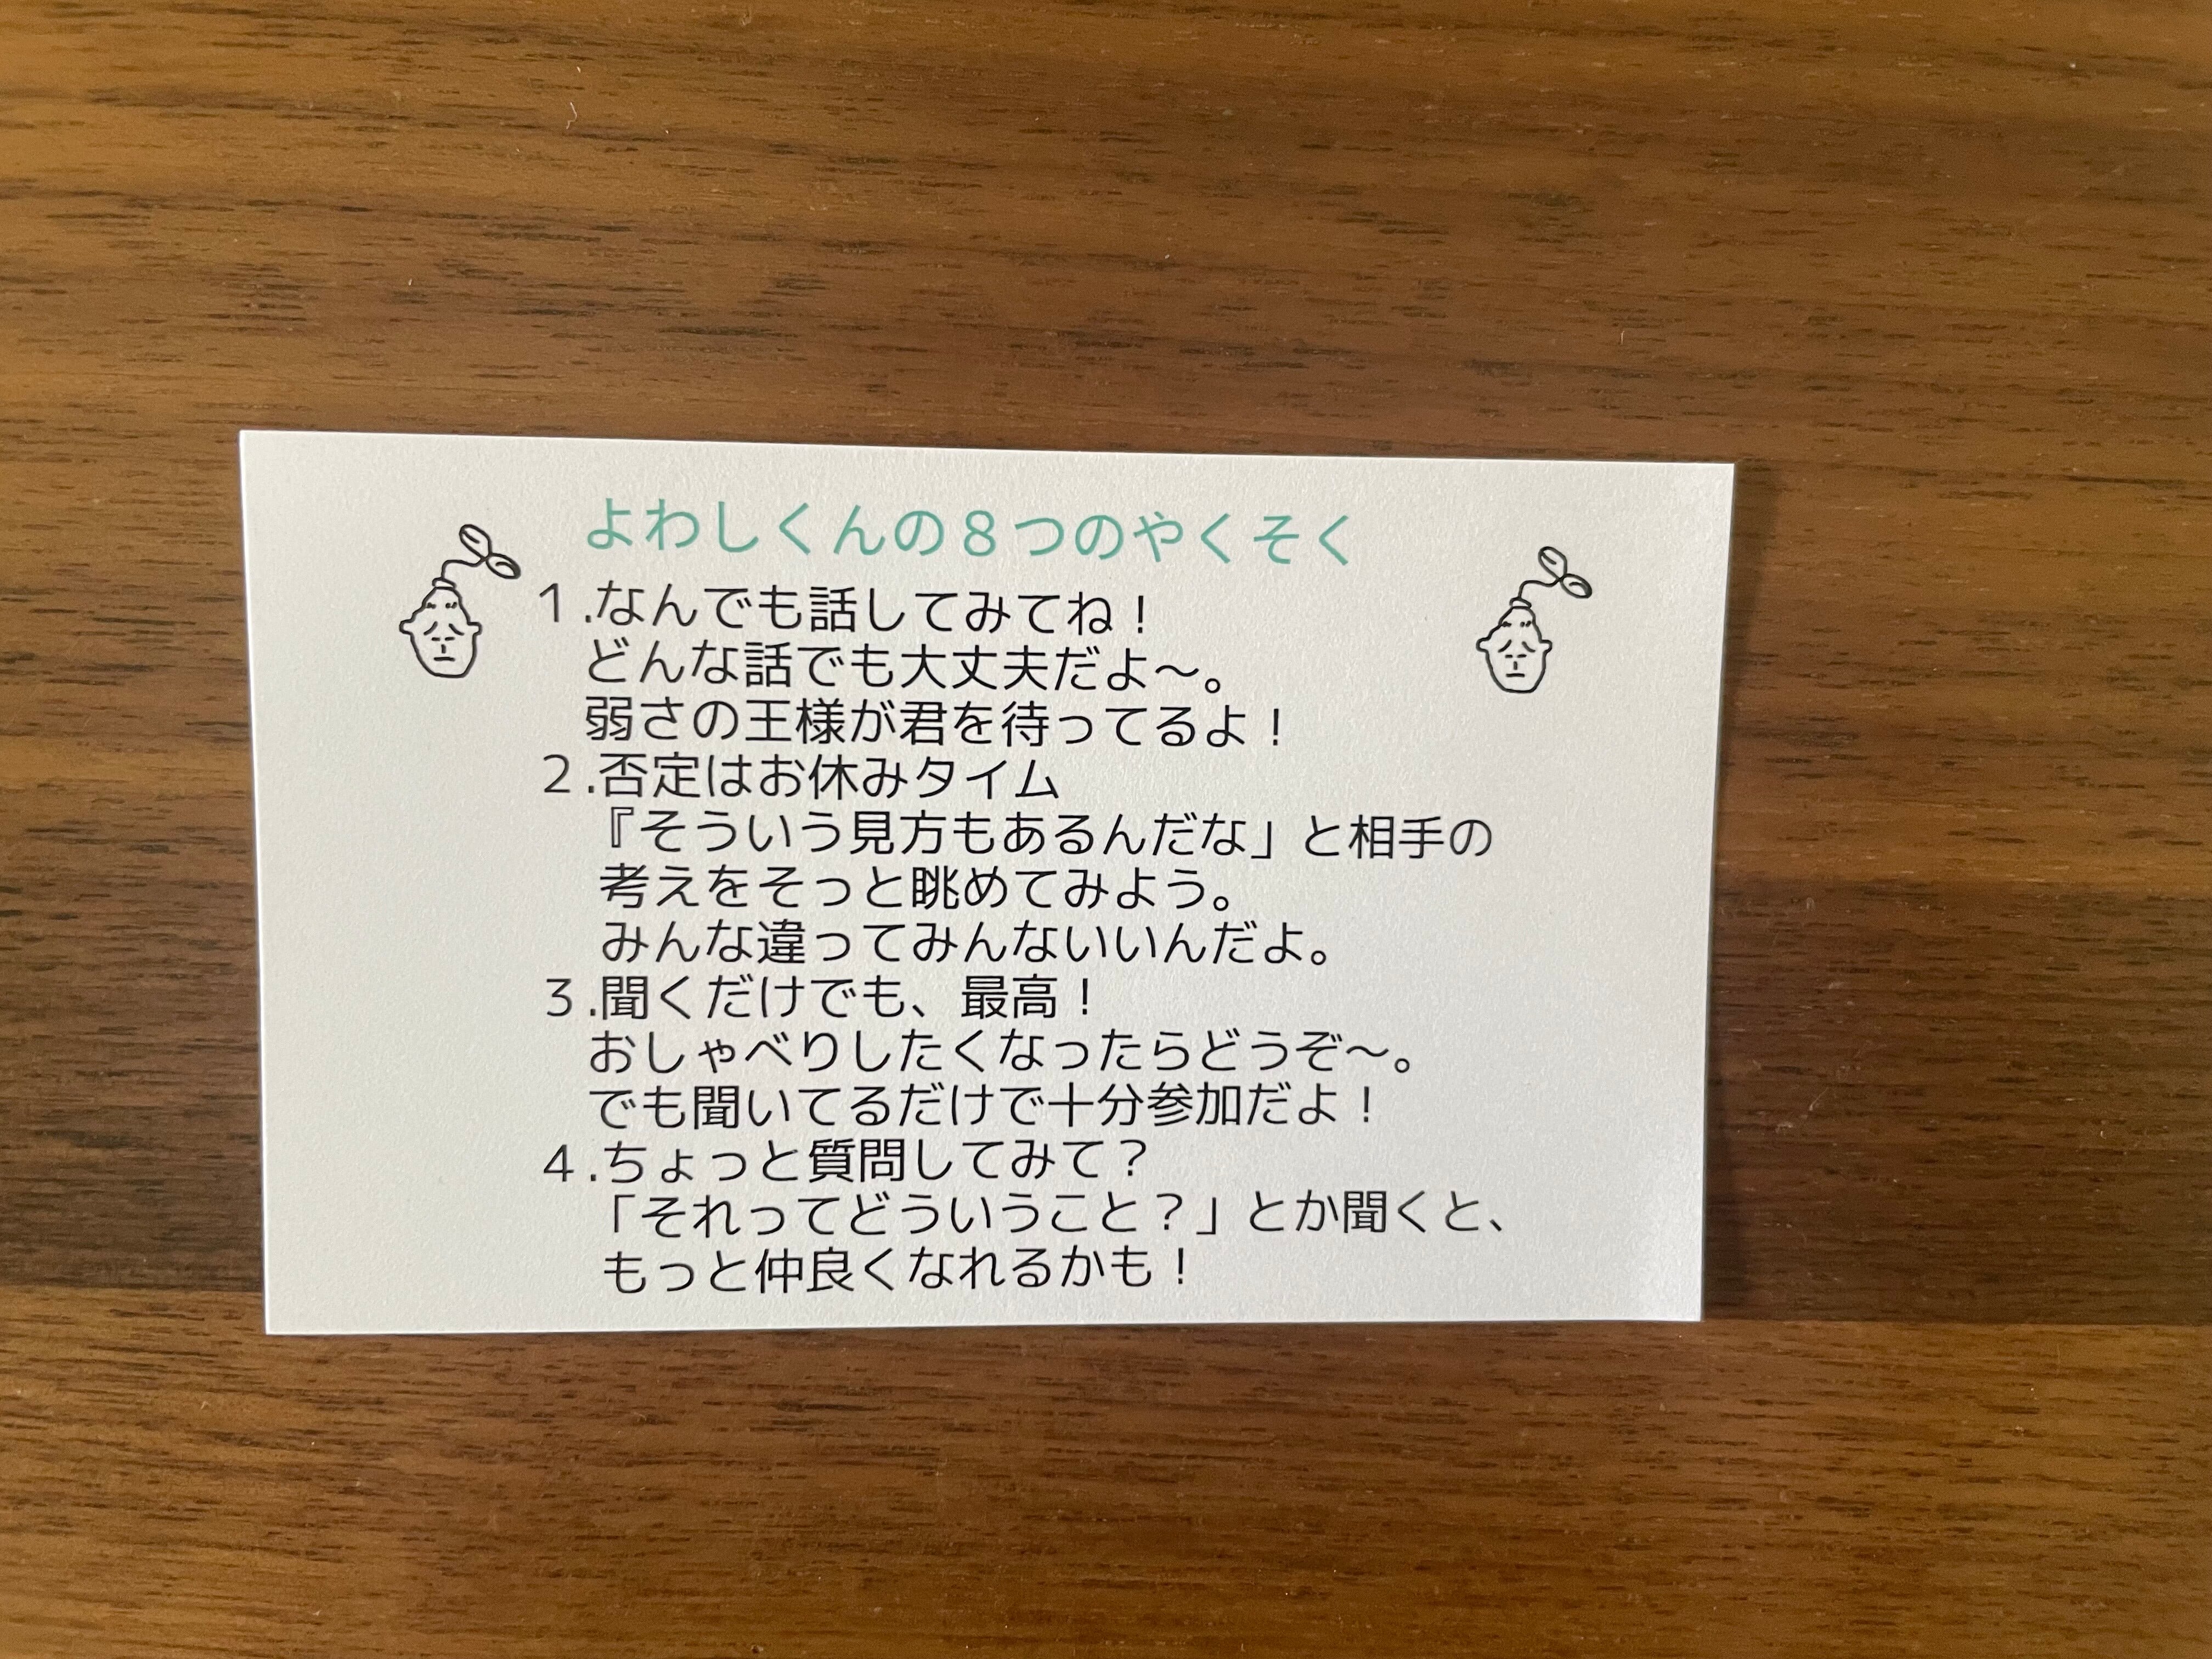 よわしくんの８つのやくそく
１.なんでも話してみてね！
どんな話でも大丈夫だよ〜。
弱さの王様が君を待ってるよ！
２.否定はお休みタイム
『そういう見方もあるんだな」と相手の
考えをそっと眺めてみよう。
みんな違ってみんないいんだよ。
３.聞くだけでも、最高！
おしゃべりしたくなったらどうぞ〜。
でも聞いてるだけで十分参加だよ！
４.ちょっと質問してみて？
「それってどういうこと？」とか聞くと、
もっと仲良くなれるかも！